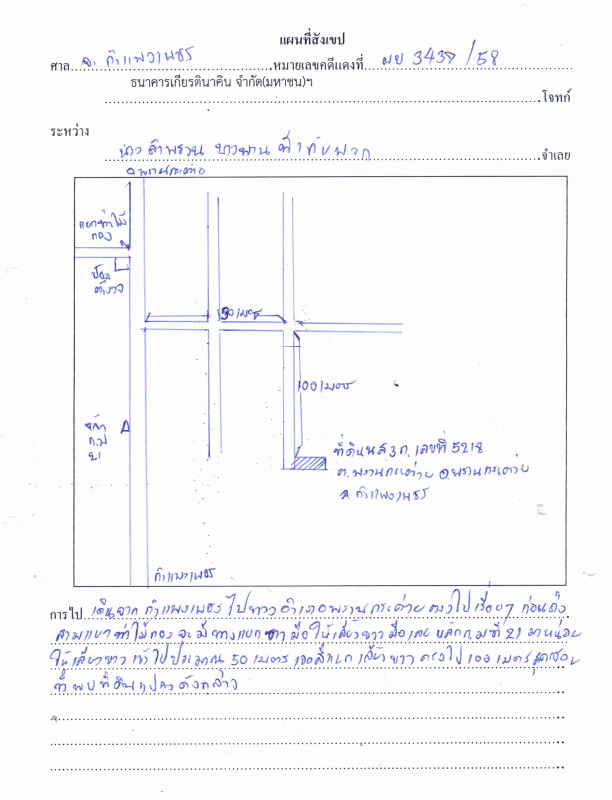 แผนที่สังเขป
ศาล จ. กำแพงเพชร หมายเลขคดีแดงที่ ผบ 3439/58
ธนาคารเกียรตินาคิน จำกัด(มหาชน)ฯ
โจทก์
ระหว่าง
จำเลย
อ.พรานกระต่าย
แยกท่าไม้
แดง
ป้อม
ตำรวจ
50 เมตร
100 เมตร
หลัก
ก.ม
21
ที่ดิน นส 3 ก. เลขที่ 5218
ต. พรานกระต่าย อ.พรานกระต่าย
จ. กำแพงเพชร
กำแพงเพชร
การไป เดินจาก กำแพงเพชร ไปทาง อำเภอพรานกระต่าย ตรงไปเรื่อยๆ ก่อนถึง
สามแยกท่าไม้แดง จะมีทางแยก ขวามือ ให้เลี้ยวขวามือเลย หลักก.มที่ 21 มาหน่อย
ให้เลี้ยวขวา เข้าไปประมาณ 50 เมตร เจอสี่แยก เลี้ยวขวา ตรงไป 100 เมตร
พบที่ดินแปลงดังกล่าว